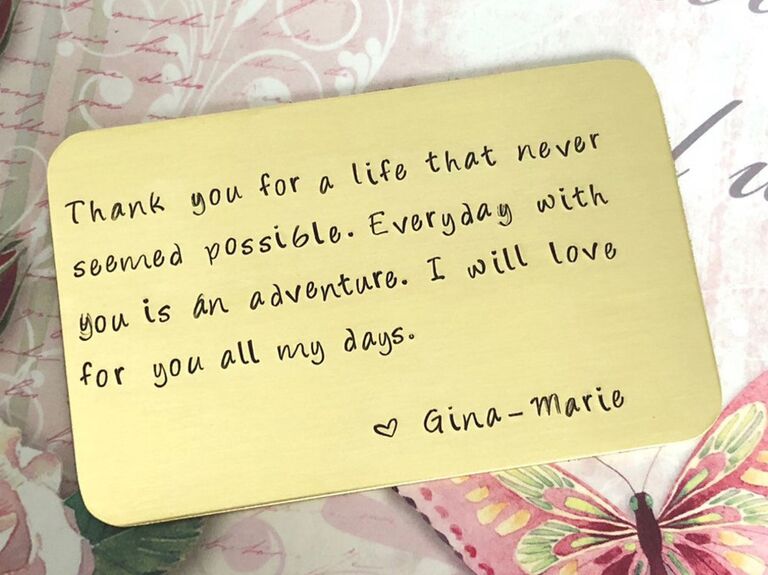 Thank you for a life that never
seemed possible. Everyday with
you is an adventure. I will love
for you all my days.
♡ Gina-Marie